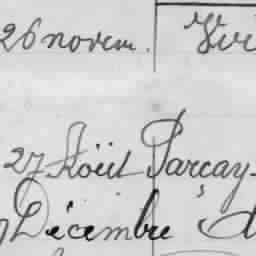 26 novem.
27 Août Parçay-
Décembre